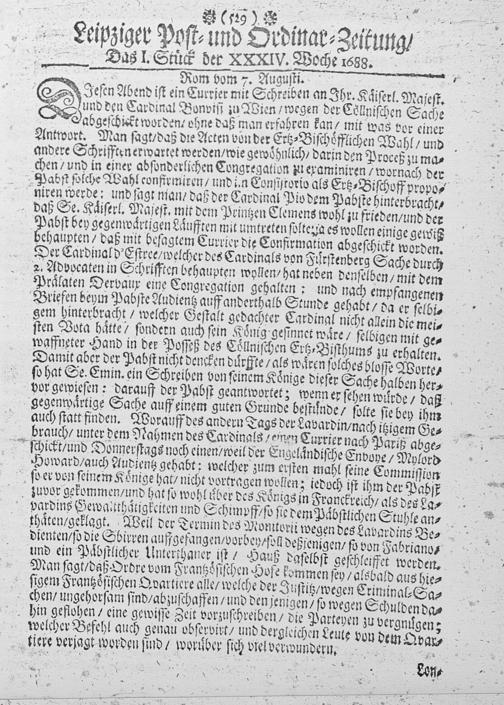 (529)
Leipziger Post- und Ordinar-Zeitung/
Das I. Stück der XXXIV. Woche 1688.
Rom vom 7. Augusti.
DIesen Abend ist ein Currier mit Schreiben an Ihr. Käiserl. Majest.
und den Cardinal Bonvisi zu Wien/wegen der Cöllnischen Sache
abgeschickt worden/ ohne daß man erfahren kan/ mit was vor einer
Antwort. Man sagt/daß die Acten von der Ertz-Bischöfflichen Wahl/ und
andere Schrifften erwartet werden/wie gewöhnlich/ darin den Proceß zu ma-
chen/ und in einer absonderlichen Congregation zu examiniren/ wornach der
Pabst solche Wahl confirmiren/ und in Consistorio als Ertz-Bischoff propo-
niren werde: und sagt man/ daß der Cardinal Pio dem Pabste hinterbracht/
daß Se. Käiserl. Majest. mit dem Printzen Clemens wohl zu frieden/und der
Pabst bey gegenwärtigen Läufften mit umtreten solte: ja es wollen einige gewiß
behaupten/ daß mit besagtem Currier die Confirmation abgeschickt worden.
Der Cardinal d'Estree/welcher des Cardinals von Fürstenberg Sache durch
2. Advocaten in Schrifften behaupten wollen/ hat neben denselben/ mit dem
Prälaten Dervaux eine Congregation gehalten: und nach empfangenen
Briefen beym Pabste Audientz auff anderthalb Stunde gehabt/ da er selbi-
gem hinterbracht/ welcher Gestalt gedachter Cardinal nicht allein die mei-
sten Vota hätte/ sondern auch sein König gesinnet wäre/ selbigen mit ge-
waffneter Hand in der Posseß des Cöllnischen Ertz-Bisthums zu erhalten.
Damit aber der Pabst nicht dencken dürffte/ als wären solches blosse Worte/
so hat Se. Emin. ein Schreiben von seinem Könige dieser Sache halben her-
vor gewiesen: darauff der Pabst geantwortet; wenn er sehen würde/ daß
gegenwärtige Sache auff einem guten Grunde bestünde/ solte sie bey ihm
auch statt finden. Worauff des andern Tags der Lavardin/nach itzigem Ge-
brauch/ unter dem Nahmen des Cardinals/ einen Currier nach Pariß abge-
schickt/und Donnerstags noch einen/weil der Engeländische Envoye/ Mylord
Howard/auch Audientz gehabt: welcher zum ersten mahl seine Commission
so er von seinem Könige hat/ nicht vortragen wollen; iedoch ist ihm der Pabst
zuvor gekommen/und hat so wohl über des Königs in Franckreich/ als des La-
vardins Gewaltthätigkeiten und Schimpff/ so sie dem Päbstlichen Stuhle an-
thäten/geklagt. Weil der Termin des Monitorii wegen des Lavardins Be-
dienten/so die Sbirren auffgefangen/vorbey/soll deßjenigen/ so von Fabriano-
und ein Päbstlicher Unterthaner ist/ Hauß daselbst geschleiffet werden.
Man sagt/daß Ordre vom Frantzösischen Hofe kommen sey/ alsbald aus hie-
sigem Frantzösischen Qvartiere alle/ welche der Justitz/wegen Criminal-Sa-
chen/ ungehorsam sind/abzuschaffen/ und den jenigen/ so wegen Schulden da-
hin geflohen/ eine gewisse Zeit vorzuschreiben/ die Parteyen zu vergnügen;
welcher Befehl auch genau observirt/ und dergleichen Leute von dem Qvar-
tiere verjagt worden sind/ worüber sich viel verwundern.
Lon-